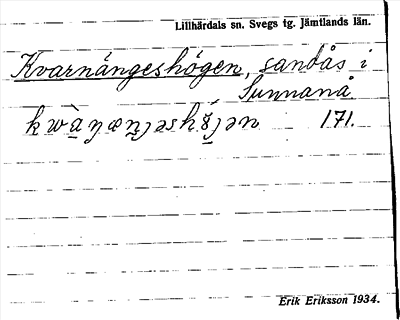 Lillhärdals sn. Svegs tg. Jämtlands län.
Kvarnängeshögen, sandås i
Sunnanå
171.
Erik Eriksson 1934.